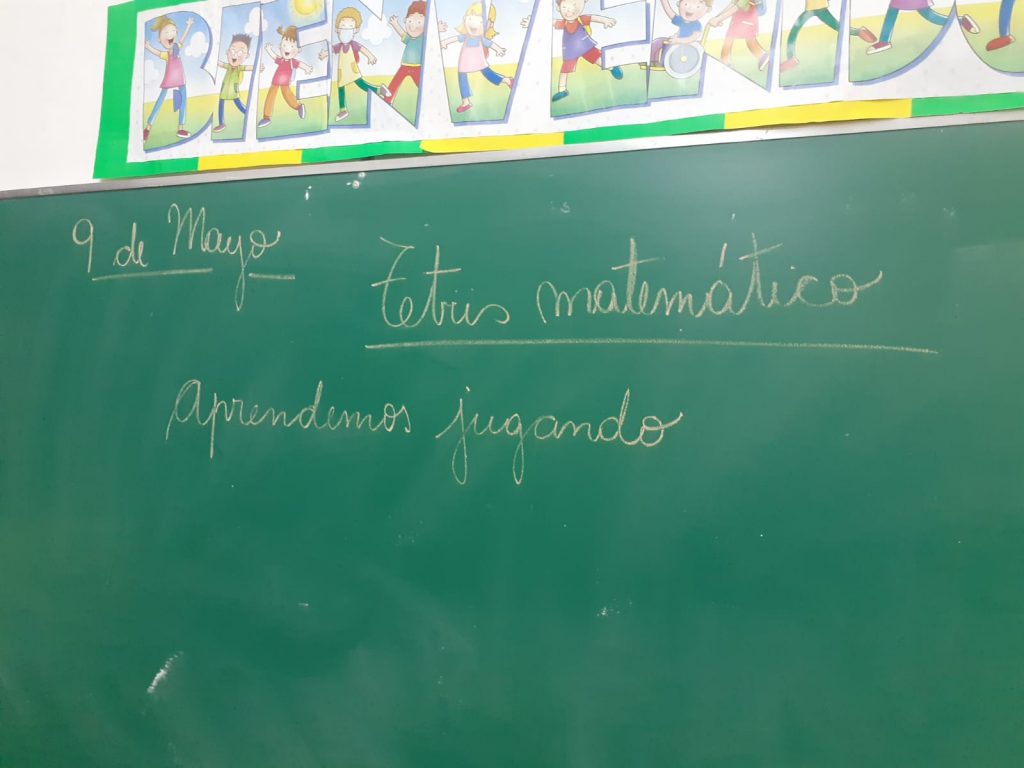 BIENVENIDO
9 de Mayo
Tetris matemático
Aprendemos jugando